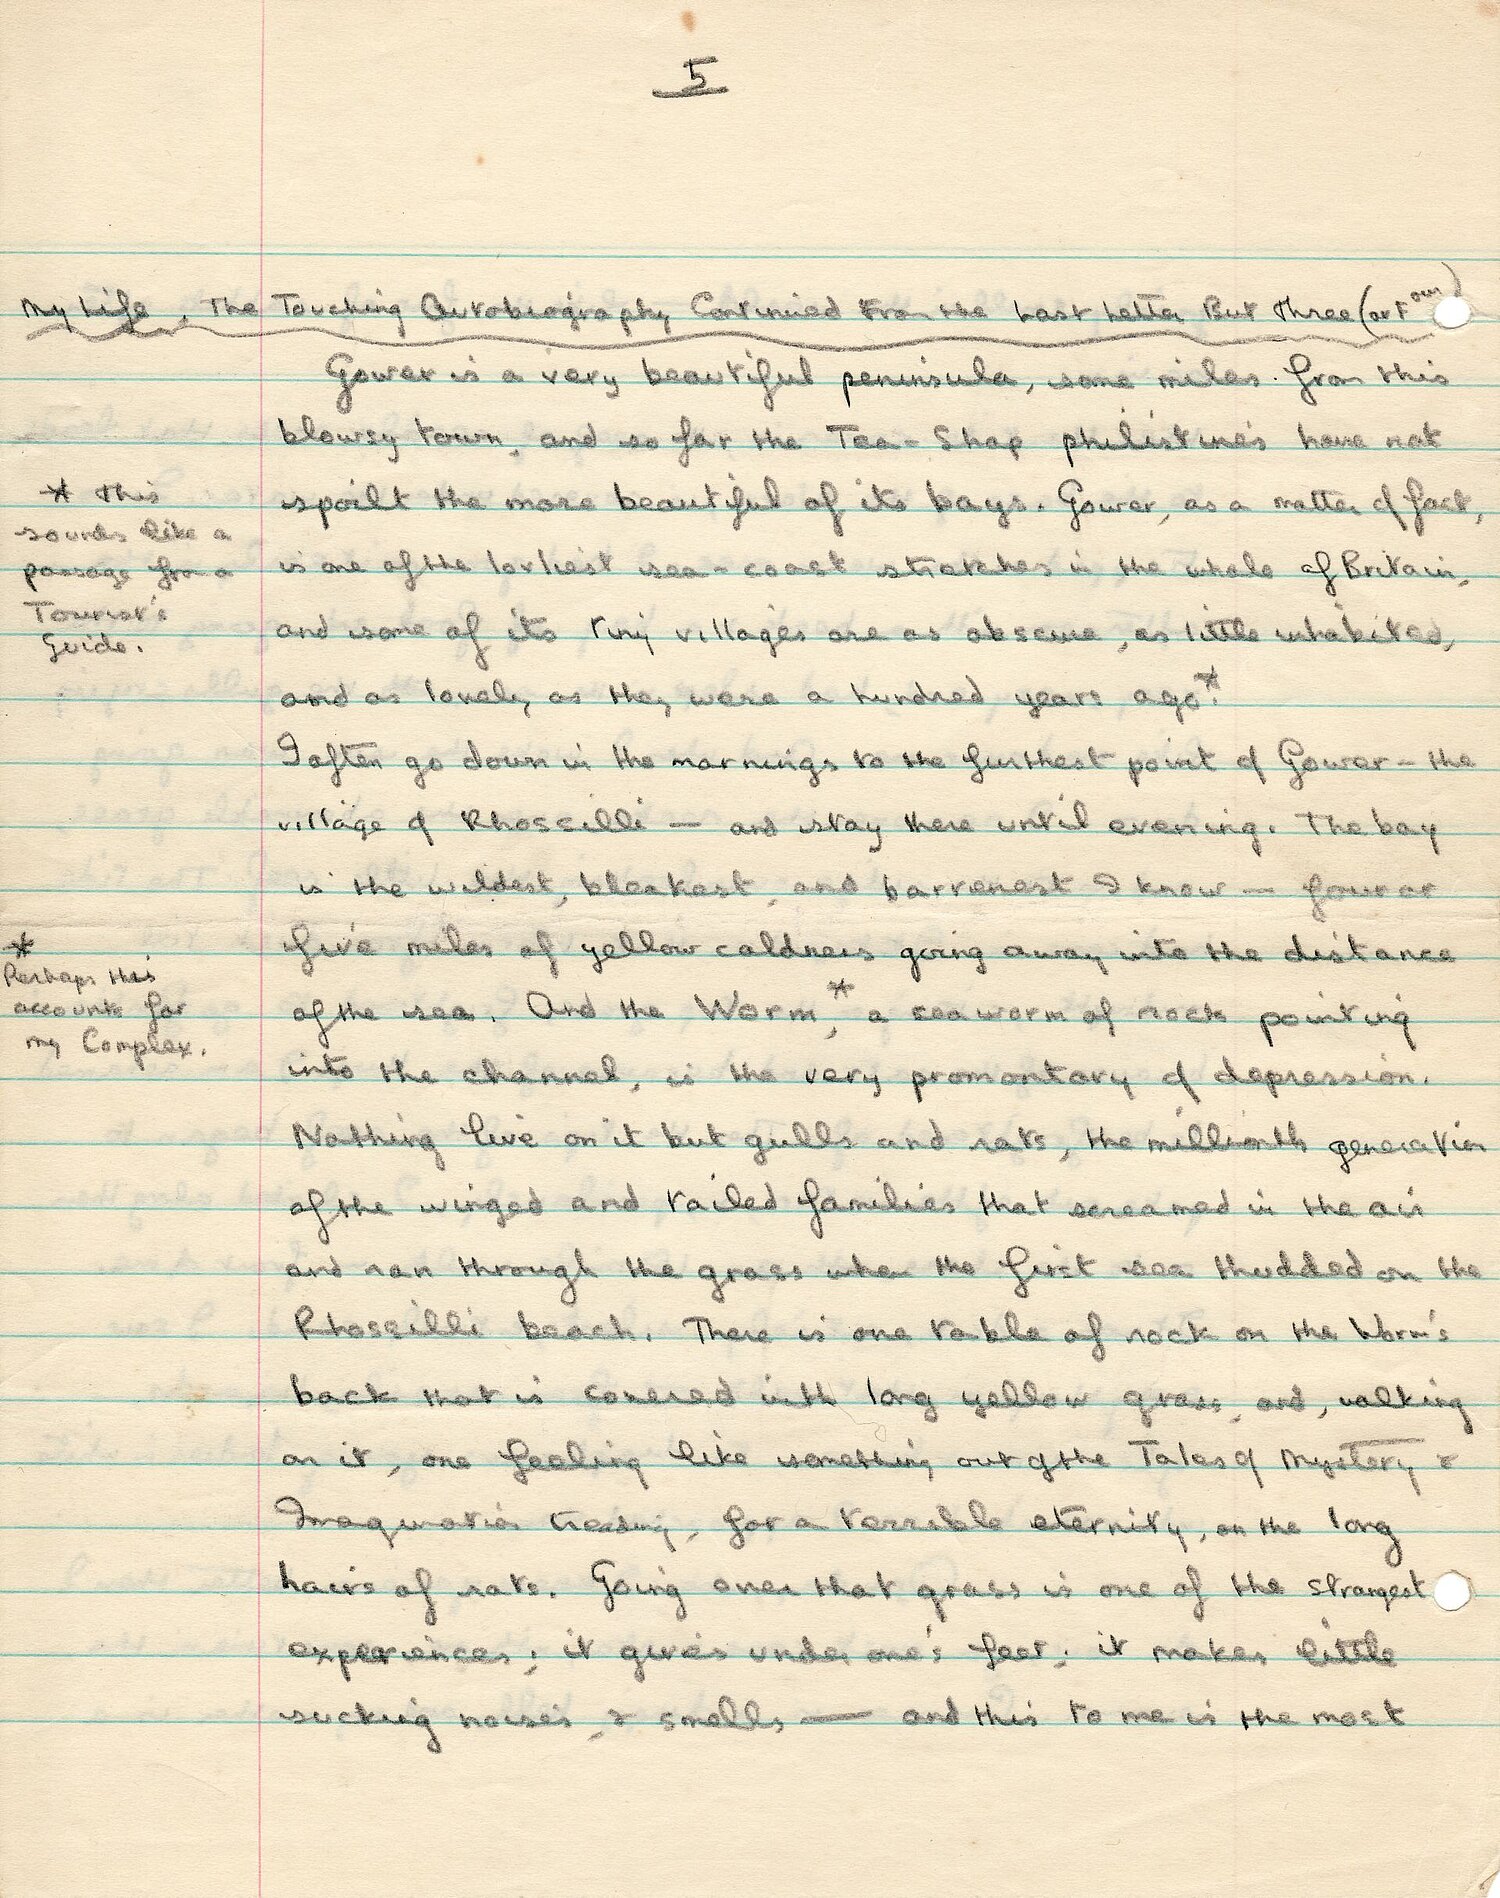 5
My Life. The Touching Autobiography Continued From the Last Letter But Three (or Four)
Gower is a very beautiful peninsula, some miles from this
blowsy town, and so far the Tea-Shop philistines have not
spoilt the more beautiful of its bays. Gower, as a matter of fact,
is one of the loveliest sea-coast stretches in the whole of Britain,
and some of its tiny villages are as obscure, as little inhabited,
and as lovely as they were a hundred years ago*.
* This
sounds like a
passage from a
Tourist's
Guide.
I often go down in the mornings to the furthest point of Gower - the
village of Rhossilli — and stay there until evening. The bay
is the wildest, bleakest, and barrenest I know — four or
five miles of yellow coldness going away into the distance
of the sea. And the Worm*, a seaworm of rock pointing
into the channel, is the very promontory of depression.
*
Perhaps this
accounts for
my Complex.
Nothing live on it but gulls and rats, the millionth generation
of the winged and tailed families that screamed in the air
and ran through the grass when the first sea thudded on the
Rhossilli beach. There is one table of rock on the Worm's
back that is covered with long yellow grass, and, walking
on it, one feeling like something out of the Tales of Mystery &
Imagination treading, for a terrible eternity, on the long
hairs of rats. Going over that grass is one of the strangest
experiences; it gives under one's feet; it makes little
sucking noises, & smells — and this to me is the most